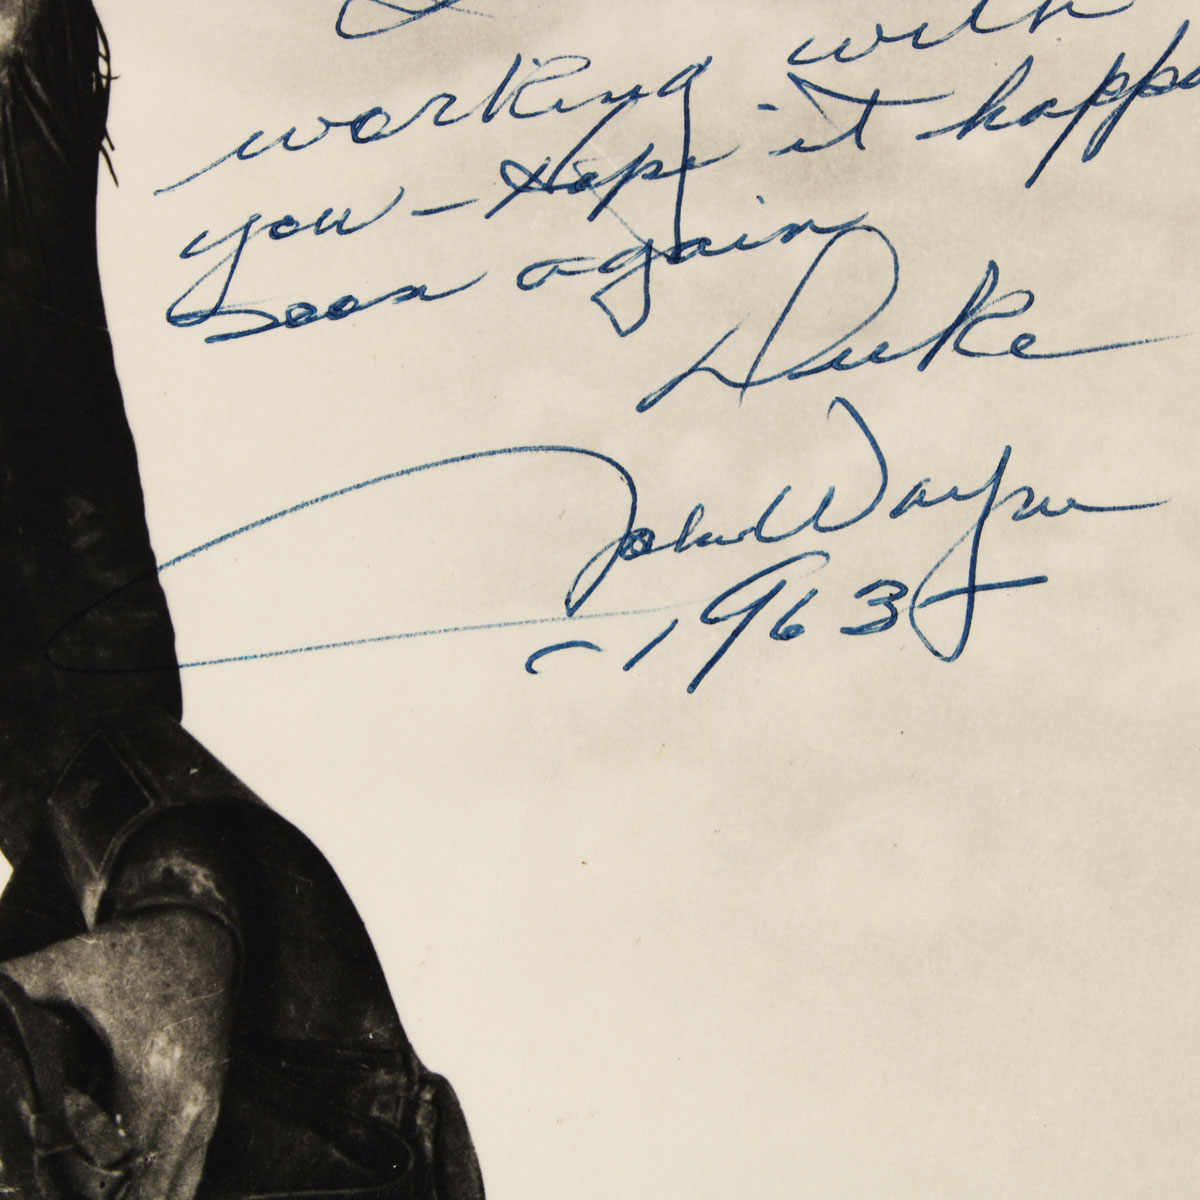 working with
you - Hope it happe
soon again
Duke
John Wayne
- 1963